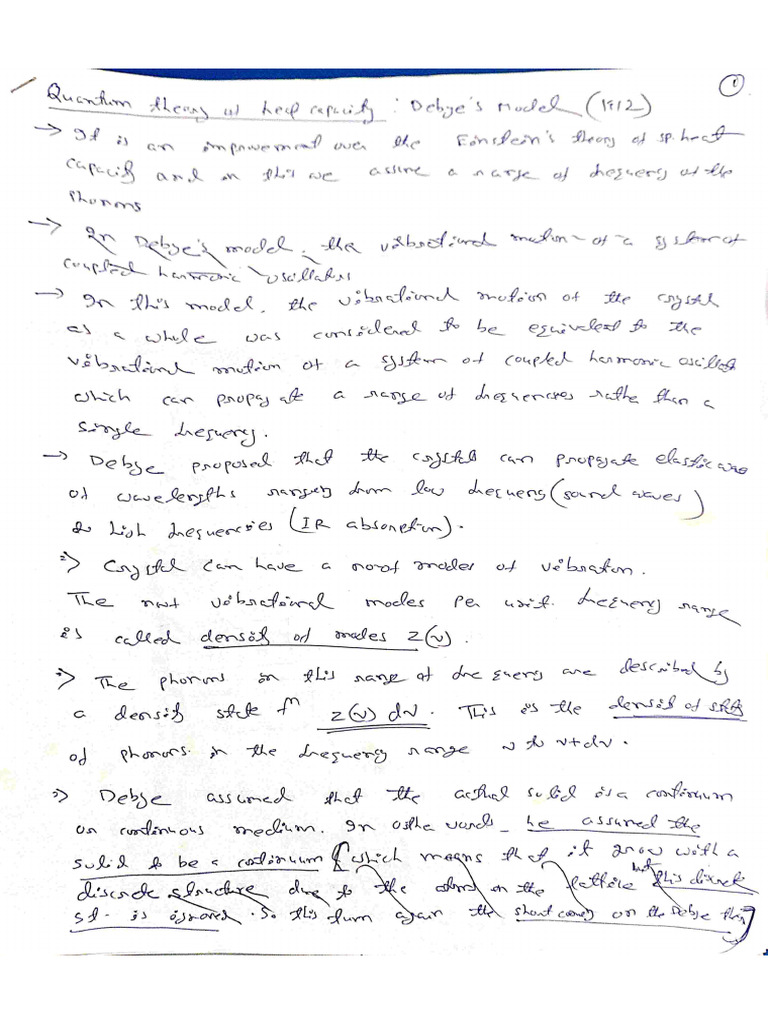 1
Quantum theory of heat capacity : Debye's Model (1912)
→ It is an improvement over the Einstein's theory of sp. heat
capacity and in this we assume a range of frequency of the
phonons
→ In Debye's model, the vibrational motion of a system of
coupled harmonic oscillators
→ In this model, the vibrational motion of the crystal
as a whole was considered to be equivalent to the
vibrational motion of a system of coupled harmonic oscillators
which can propagate a range of frequencies rather than a
single frequency.
→ Debye proposed that the crystal can propagate elastic waves
of wavelengths ranging from low frequency (sound waves)
to high frequencies (IR absorption).
Crystal can have a no. of modes of vibration.
The no. of vibrational modes per unit frequency range
is called density of modes Z(ν).
The phonons in this range of frequency are described by
a density state fn Z(ν) dν. This is the density of states
of phonons in the frequency range ν to ν+dν.
Debye assumed that the actual solid is a continuum
or continuous medium. In other words, he assumed the
solid to be a continuum [which means that it grow with a
discrete structure due to the on the lattice but this discrete
st. is ignored. So this turn again the short coming on the Debye